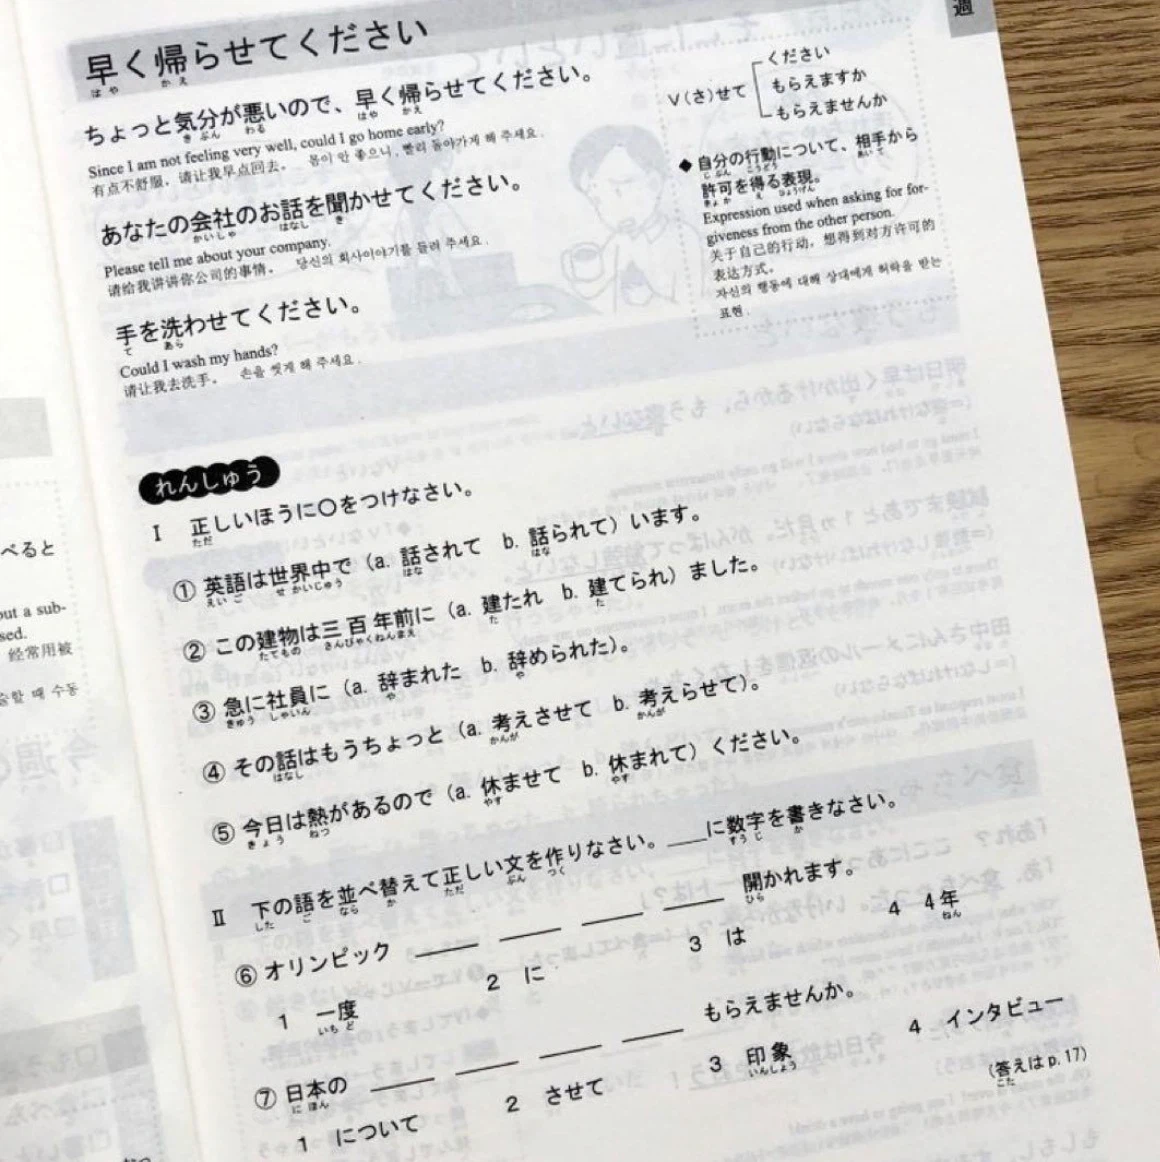 週
早く帰らせてください
はや かえ
ちょっと気分が悪いので、早く帰らせてください。
き ぶん わる はや かえ
Since I am not feeling very well, could I go home early?
有点不舒服，请让我早点回去。 몸이 안 좋으니, 빨리 돌아가게 해 주세요.
あなたの会社のお話を聞かせてください。
かいしゃ はなし き
Please tell me about your company.
请给我讲讲你公司的事情。 당신의 회사이야기를 들려 주세요.
手を洗わせてください。
て あら
Could I wash my hands?
请让我去洗手。 손을 씻게 해 주세요.
V（さ）せて
ください
もらえますか
もらえませんか
◆ 自分の行動について、相手から
じ ぶん こうどう あい て
許可を得る表現。
きょ か え ひょうげん
Expression used when asking for for-
giveness from the other person.
关于自己的行动，想得到对方许可的
表达方式。
자신의 행동에 대해 상대에게 허락을 받는
표현.
れんしゅう
Ⅰ 正しいほうに○をつけなさい。
ただ
① 英語は世界中で（a. 話されて b. 話られて）います。
えい ご せ かいじゅう はな はな
② この建物は三百年前に（a. 建たれ b. 建てられ）ました。
たてもの さんびゃくねんまえ た た
③ 急に社員に（a. 辞まれた b. 辞められた）。
きゅう しゃいん や や
④ その話はもうちょっと（a. 考えさせて b. 考えらせて）。
はなし かんが かんが
⑤ 今日は熱があるので（a. 休ませて b. 休まれて）ください。
きょう ねつ やす やす
Ⅱ 下の語を並べ替えて正しい文を作りなさい。____に数字を書きなさい。
した ご なら か ただ ぶん つく すう じ か
⑥ オリンピック ____ ____ ____ ____ 開かれます。
ひら
1 一度 2 に 3 は 4 4年
いち ど ねん
⑦ 日本の ____ ____ ____ ____ もらえませんか。
に ほん
1 について 2 させて 3 印象 4 インタビュー
いんしょう
（答えは p. 17）
こた
べると
out a sub-
sed.
经常用被